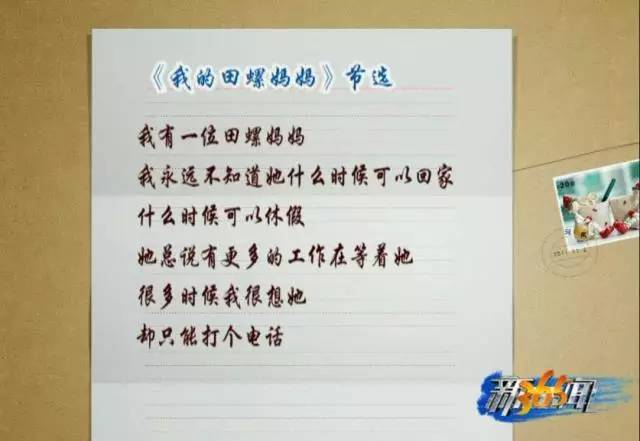 《我的田螺妈妈》节选
我有一位田螺妈妈
我永远不知道她什么时候可以回家
什么时候可以休假
她总说有更多的工作在等着她
很多时候我很想她
却只能打个电话
新闻365